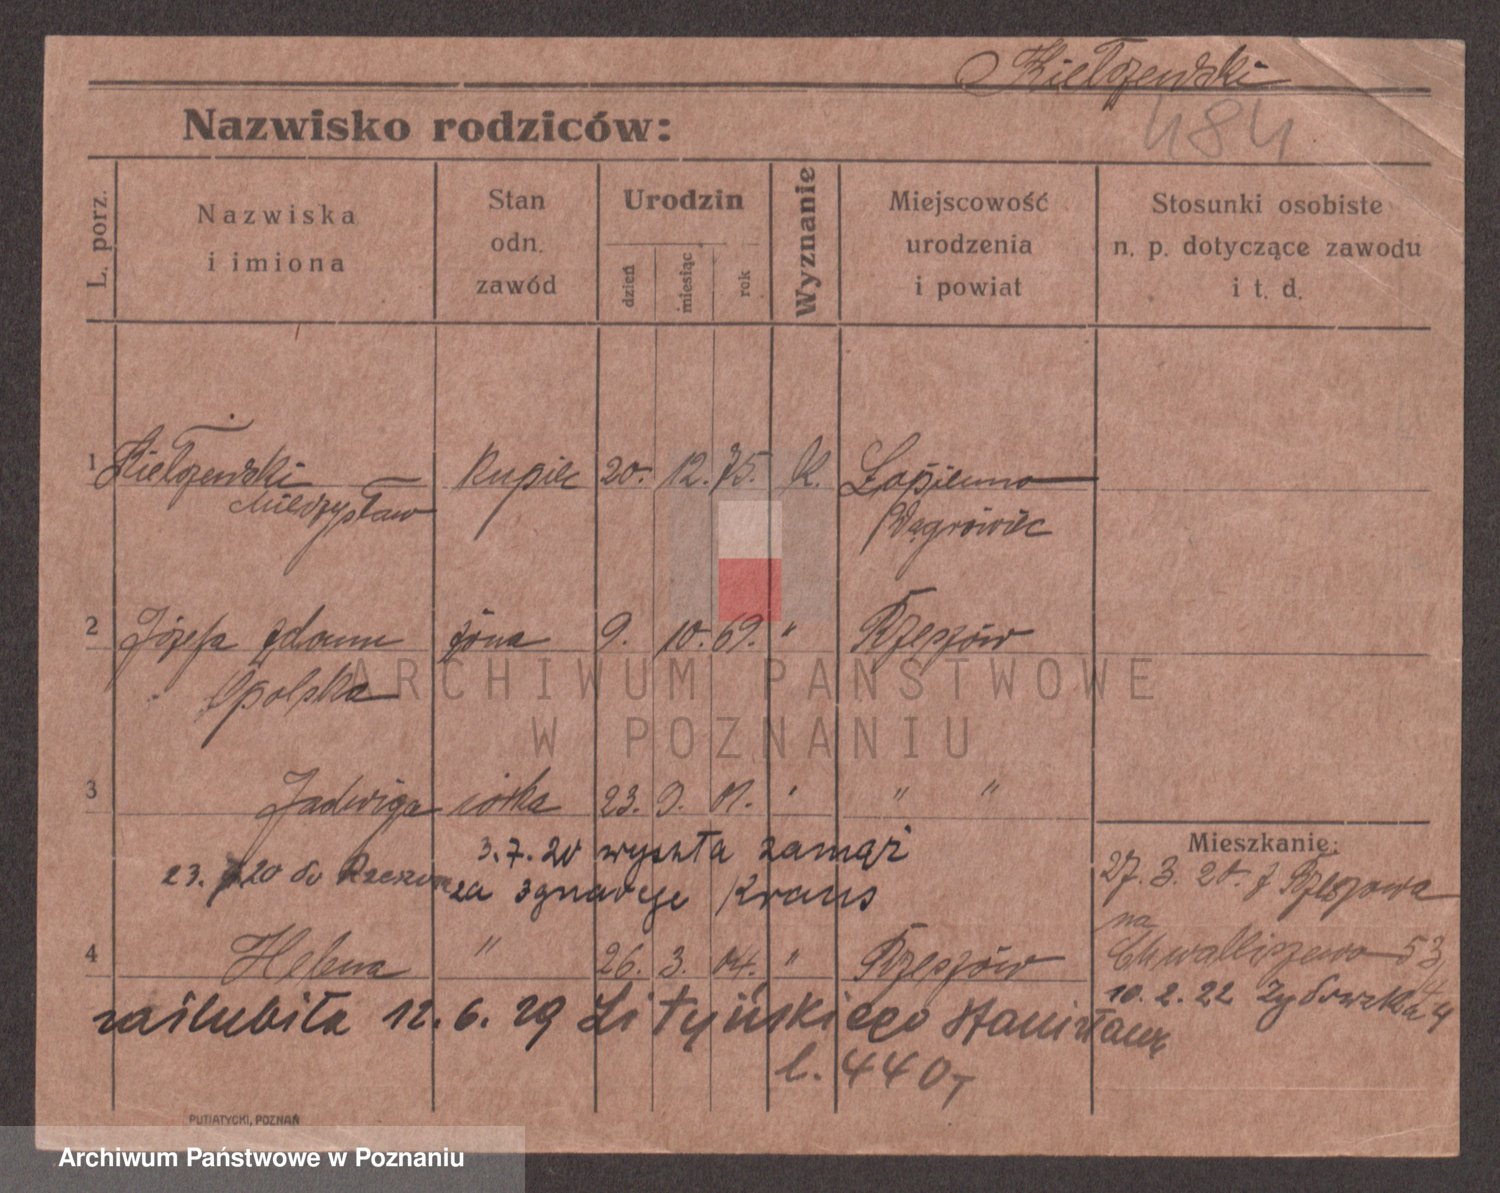 Kiełczewski
484
Nazwisko rodziców:
L. porz.
Nazwiska
i imiona
Stan
odn.
zawód
Urodzin
dzień
miesiąc
rok
Wyznanie
Miejscowość
urodzenia
i powiat
Stosunki osobiste
n. p. dotyczące zawodu
i t. d.
1 Kiełczewski kupiec 20. 12. 75. K. Łopienno
Mieczysław Wągrowiec
2 Józefa żona 9. 10. 69. " Rzeszów
Opolska
ARCHIWUM PAŃSTWOWE
W POZNANIU
3 Jadwiga córka 23. 9. 01. " " "
3.7.20 wyszła zamąż
23. 7 20 do Rzeszowa za Ignacego Kraus
Mieszkanie:
27. 3. 20. z Rzeszowa
na
Chwaliszewo 53
4 Helena " 26. 3. 04. " Rzeszów
10. 2. 22 Żydowska 4
zaślubiła 12. 6. 29 Lityńskiego Stanisława
l. 440
PUTIATYCKI, POZNAŃ
Archiwum Państwowe w Poznaniu